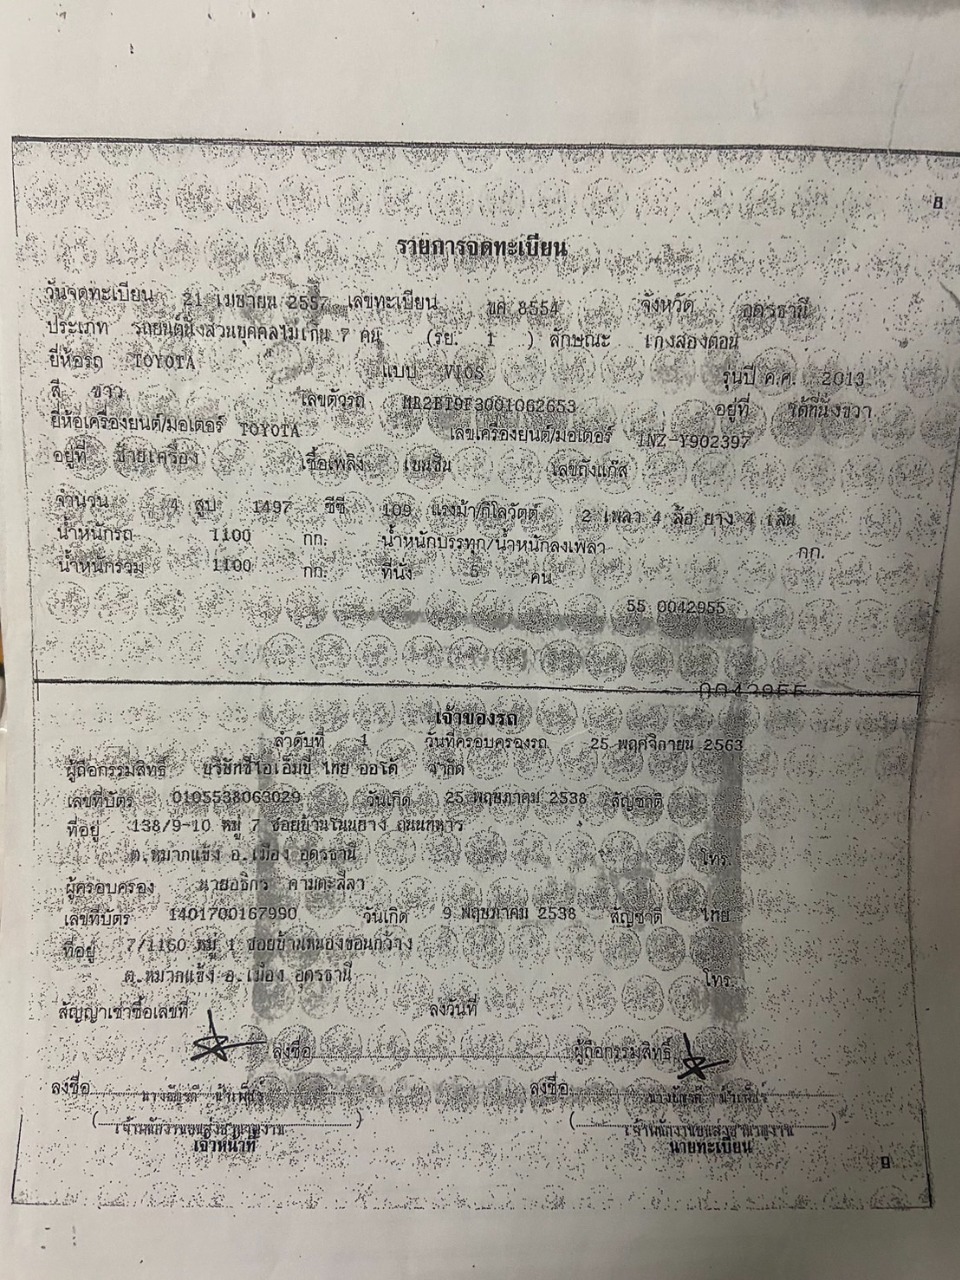 8
รายการจดทะเบียน
วันจดทะเบียน 21 เมษายน 2557 เลขทะเบียน ขค 8554 จังหวัด อุดรธานี
ประเภท รถยนต์นั่งส่วนบุคคลไม่เกิน 7 คน (รย. 1 ) ลักษณะ เก๋งสองตอน
ยี่ห้อรถ TOYOTA แบบ VIOS รุ่นปี ค.ศ. 2013
สี ขาว เลขตัวรถ MR2BT9F3001062653 อยู่ที่ ใต้ที่นั่งขวา
ยี่ห้อเครื่องยนต์/มอเตอร์ TOYOTA เลขเครื่องยนต์/มอเตอร์ 1NZ-Y902397
อยู่ที่ ซ้ายเครื่อง เชื้อเพลิง เบนซิน เลขถังแก๊ส
จำนวน 4 สูบ 1497 ซีซี 109 แรงม้า/กิโลวัตต์ 2 เพลา 4 ล้อ ยาง 4 เส้น
น้ำหนักรถ 1100 กก. น้ำหนักบรรทุก/น้ำหนักลงเพลา กก.
น้ำหนักรวม 1100 กก. ที่นั่ง 5 คน
55 0042955
0042955
เจ้าของรถ
ลำดับที่ 1 วันที่ครอบครองรถ 25 พฤศจิกายน 2563
ผู้ถือกรรมสิทธิ์ บริษัทซีไอเอ็มบี ไทย ออโต้ จำกัด
เลขที่บัตร 0105538063029 วันเกิด 25 พฤษภาคม 2538 สัญชาติ
ที่อยู่ 138/9-10 หมู่ 7 ซอยบ้านโนนยาง ถนนทหาร
ต.หมากแข้ง อ.เมือง อุดรธานี โทร.
ผู้ครอบครอง นายอธิกร
เลขที่บัตร 1401700167990 วันเกิด 9 พฤษภาคม 2538 สัญชาติ ไทย
ที่อยู่ 7/1160 หมู่ 1 ซอยบ้านหนองขอนกว้าง
ต.หมากแข้ง อ.เมือง อุดรธานี โทร.
สัญญาเช่าซื้อเลขที่ ลงวันที่
ลงชื่อ ผู้ถือกรรมสิทธิ์
ลงชื่อ ลงชื่อ
(เจ้าพนักงานขนส่งชำนาญงาน) (เจ้าพนักงานขนส่งชำนาญงาน)
เจ้าหน้าที่ นายทะเบียน
9